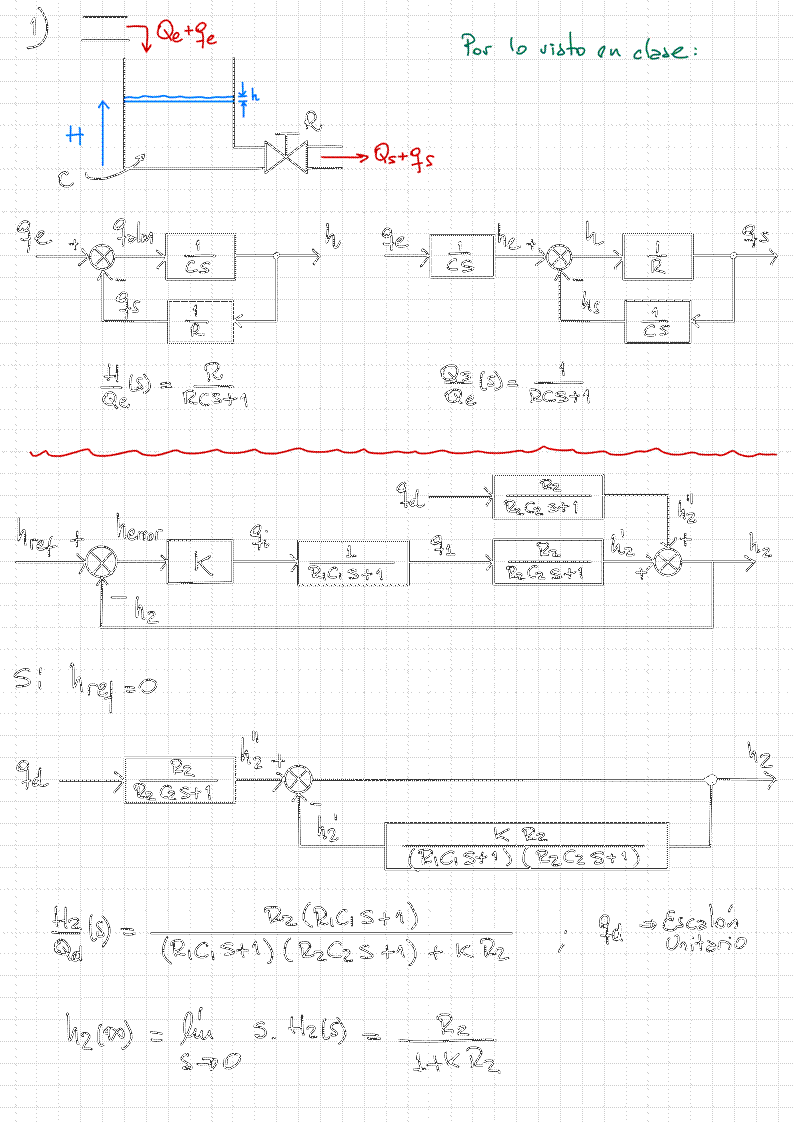 1)
Qe+qe
Por lo visto en clase:
h
H
R
Qs+qs
C
qe + qalm 1/CS h
− qs 1/R
qe 1/CS he + h 1/R qs
− hs 1/CS
H/Qe (s) = R/RCS+1
Qs/Qe (s) = 1/RCS+1
qd R2/R2C2S+1 h2''
href + herror K qi 1/R1C1S+1 q1 R2/R2C2S+1 h2' + + h2
− h2
Si href=0
qd R2/R2C2S+1 h2'' + h2
− h2' K R2/(R1C1S+1)(R2C2S+1)
H2/Qd (s) = R2(R1C1S+1)/(R1C1S+1)(R2C2S+1)+KR2 ; qd → Escalón Unitario
h2(∞) = lím s→0 S.H2(s) = R2/1+KR2